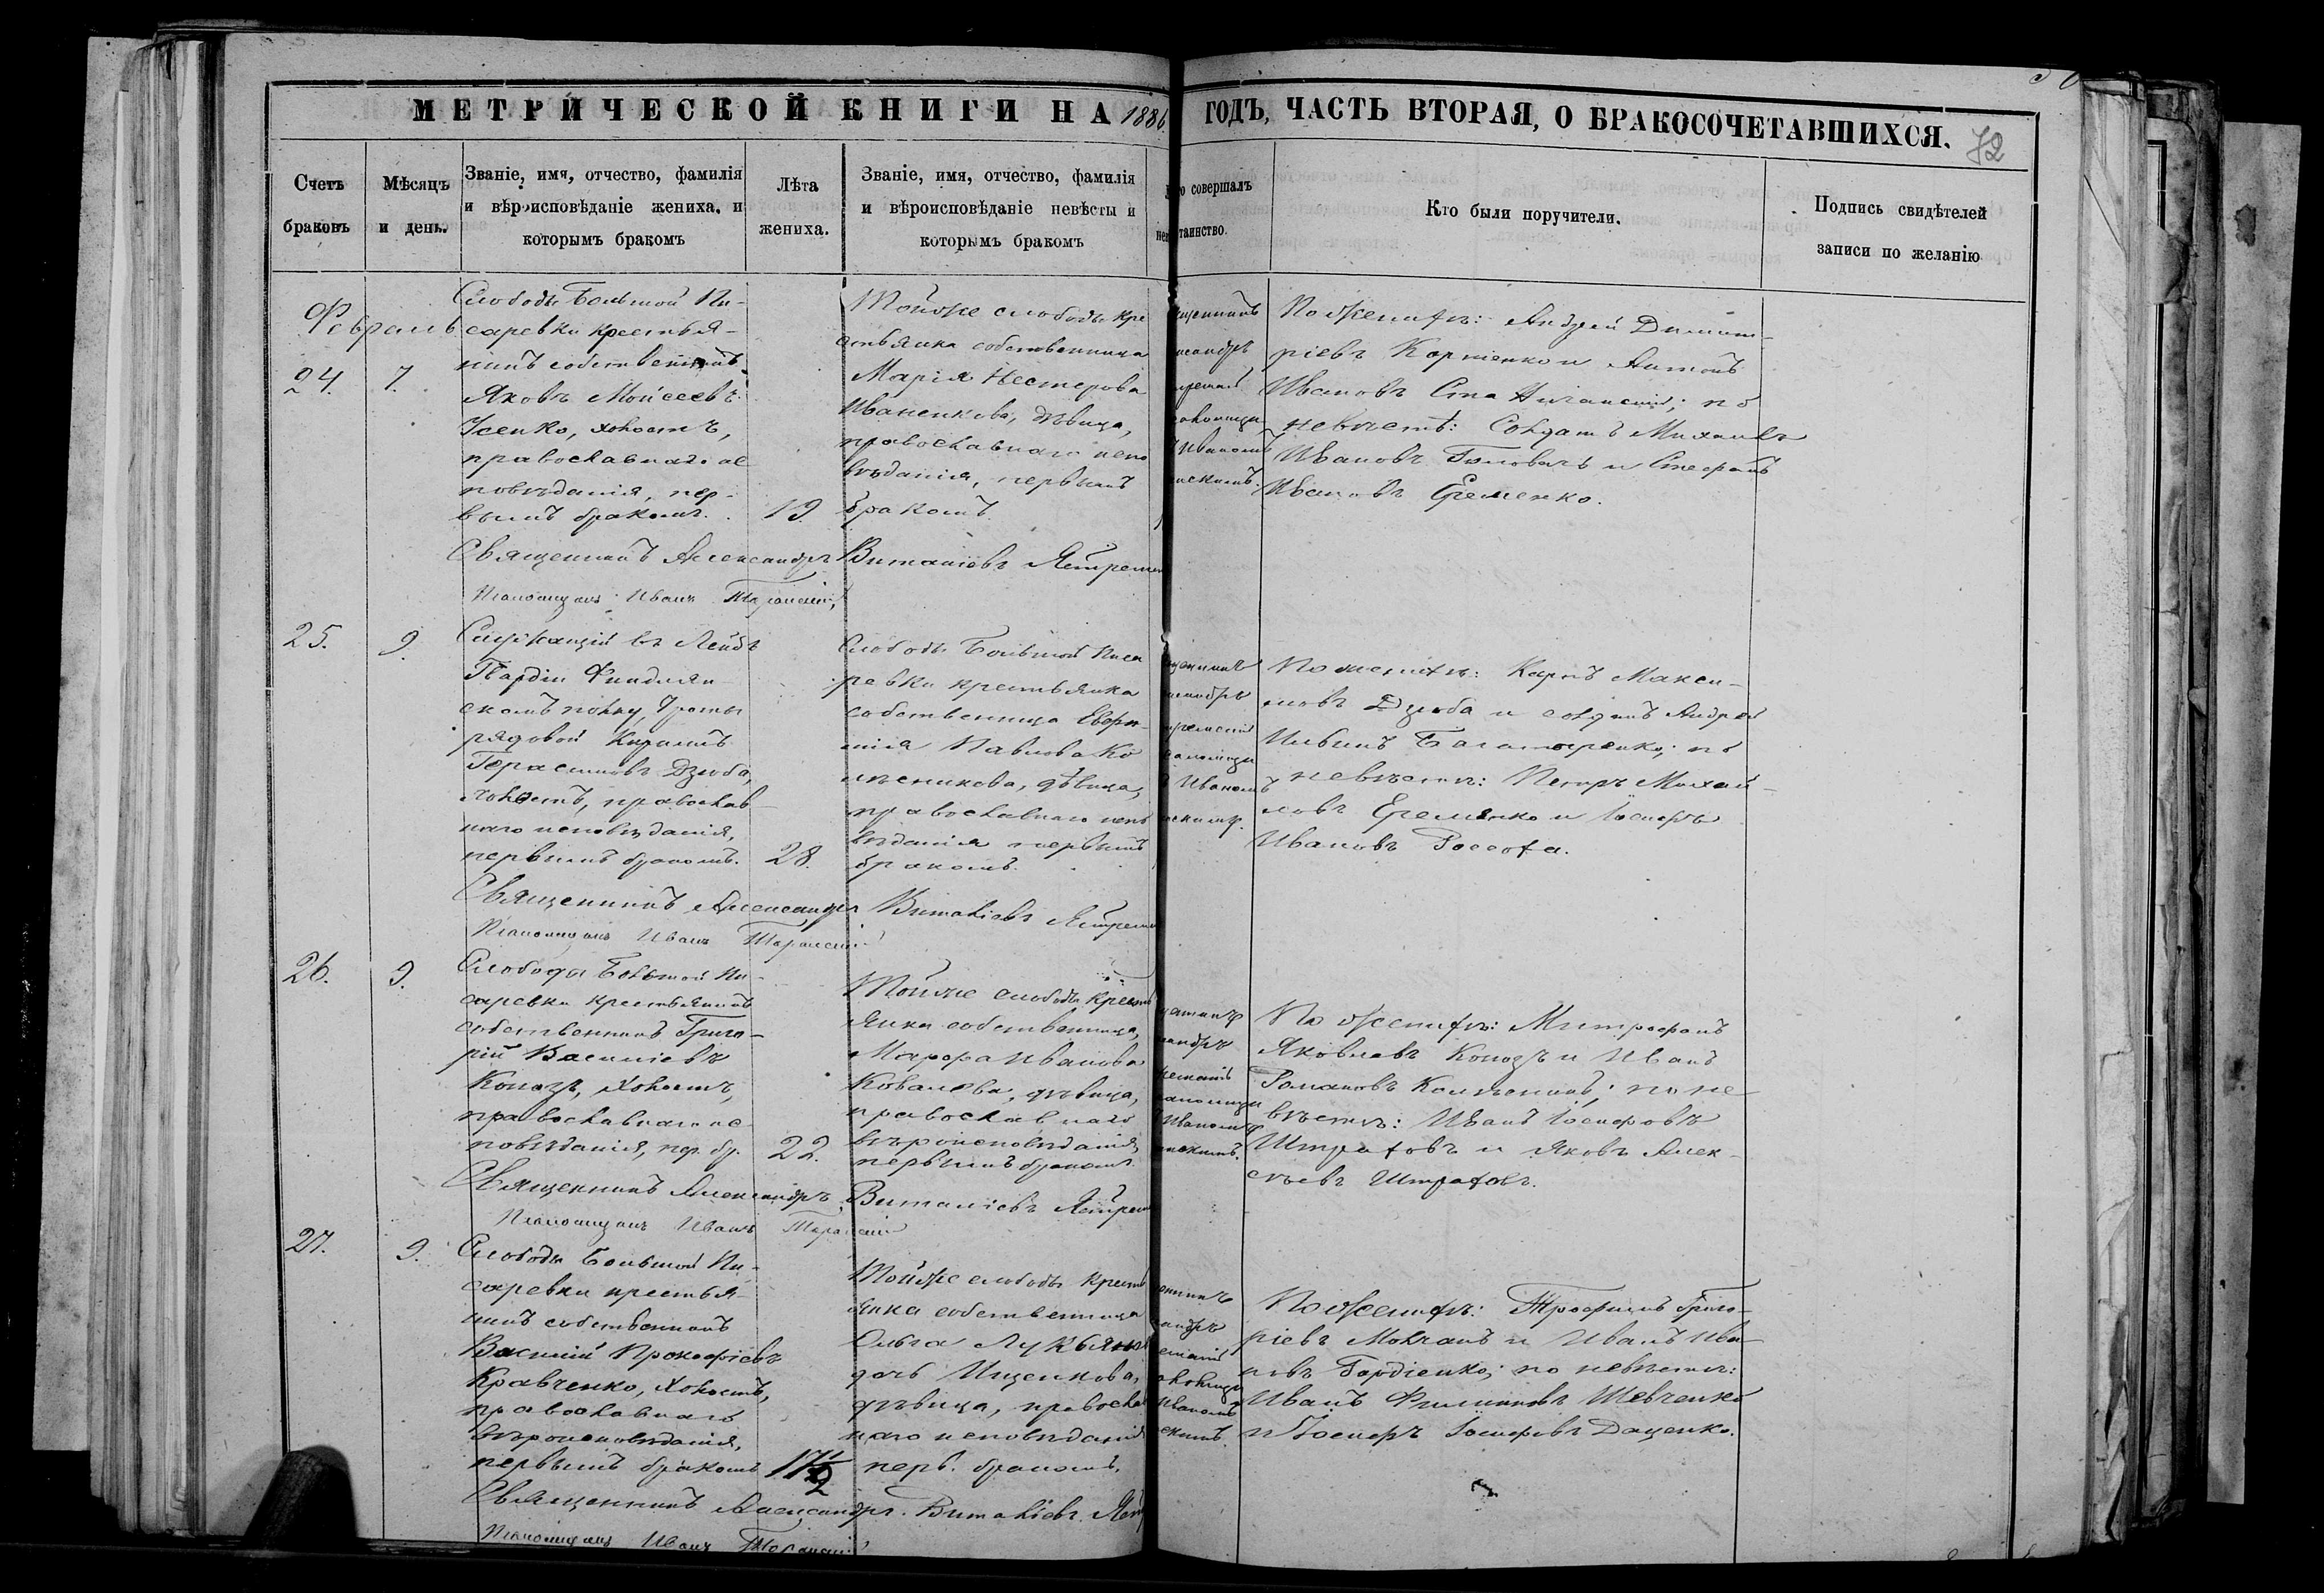 МЕТРИЧЕСКОЙ КНИГИ НА 1886
ГОДЪ, ЧАСТЬ ВТОРАЯ, О БРАКОСОЧЕТАВШИХСЯ.
72
Счетъ
браковъ
Мѣсяцъ
и день.
Званіе, имя, отчество, фамилія
и вѣроисповѣданіе жениха, и
которымъ бракомъ
Лѣта
жениха.
Званіе, имя, отчество, фамилія
и вѣроисповѣданіе невѣсты и
которымъ бракомъ
совершалъ
таинство.
Кто были поручители.
Подпись свидѣтелей
записи по желанію
Февраль
24.
7.
Слободы Большой Пи-
саревки крестья-
нинъ собственникъ
Яковъ Моисеевъ
Усенко, холостъ,
православнаго ис
повѣданія, пер-
вымъ бракомъ.
19.
Тойже слободы кре
стьянка собственница
Марія Нестерова
Иваненкова, дѣвица,
православнаго испо
вѣданія, первымъ
бракомъ.
По женихѣ: Андрей Димит-
ріевъ Корніенко и Антонъ
Ивановъ; по
невѣстѣ: Солдатъ Михаилъ
Ивановъ Головачъ и Стефанъ
Ивановъ Еременко.
Священникъ Александръ Виталіевъ
Псаломщикъ Иванъ
25.
9.
Служащій въ Лейбъ
Гвардіи Финлян-
скомъ полку, роты
рядовой Кириллъ
Герасимовъ Дзюба,
холостъ, православ-
наго исповѣданія,
первымъ бракомъ.
28.
Слободы Большой Писа
ревки крестьянка
собственница Евфи-
мія Павлова Ко
лѣсникова, дѣвица,
православнаго испо
вѣданія первымъ
бракомъ.
Иваномъ
По женихѣ: Карпъ Макси-
мовъ Дзюба и солдатъ Андрей
Ильинъ; по
невѣстѣ: Петръ Михай-
ловъ Еременко и Іосифъ
Ивановъ Россоха.
Священникъ Александръ Виталіевъ
Псаломщикъ Иванъ
26.
9.
Слободы Большой Пи-
саревки крестьянинъ
собственникъ Григо-
рій Василіевъ
Коногъ, холостъ,
православнаго ис
повѣданія, пер. бр.
22.
Тойже слободы кресть
янка собственница,
Марфа Иванова
Ковалева, дѣвица,
православнаго
вѣроисповѣданія,
первымъ бракомъ.
Иваномъ
По женихѣ: Митрофанъ
Яковлевъ и Иванъ
Романовъ; по не
вѣстѣ: Иванъ Іосифовъ
Штраховъ и Яковъ Алек-
сѣевъ Штраховъ.
Священникъ Александръ Виталіевъ
Псаломщикъ Иванъ
27.
9.
Слободы Большой Пи-
саревки крестья-
нинъ собственникъ
Василій Прокофіевъ
Кравченко, холостъ,
православнаго
вѣроисповѣданія,
первымъ бракомъ
17½
Тойже слободы кресть
янка собственница
Ольга Лукьянова
дочь Ищенкова,
дѣвица, правосла
наго исповѣданія
перв. бракомъ.
Иваномъ
По женихѣ: Трофимъ Григо-
ріевъ Молчанъ и Иванъ Ива-
новъ Гордіенко; по невѣстѣ:
Иванъ Филиповъ Шевченко
и Іосифъ Іосифовъ Даценко.
Священникъ Александръ Виталіевъ
Псаломщикъ Иванъ